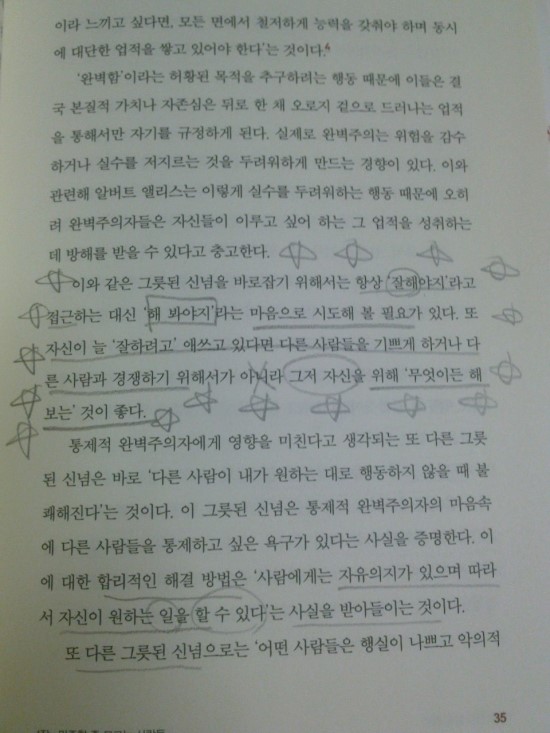 이라 느끼고 싶다면, 모든 면에서 철저하게 능력을 갖춰야 하며 동시
에 대단한 업적을 쌓고 있어야 한다’는 것이다.⁶
‘완벽함’이라는 허황된 목적을 추구하려는 행동 때문에 이들은 결
국 본질적 가치나 자존심은 뒤로 한 채 오로지 겉으로 드러나는 업적
을 통해서만 자기를 규정하게 된다. 실제로 완벽주의는 위험을 감수
하거나 실수를 저지르는 것을 두려워하게 만드는 경향이 있다. 이와
관련해 알버트 앨리스는 이렇게 실수를 두려워하는 행동 때문에 오히
려 완벽주의자들은 자신들이 이루고 싶어 하는 그 업적을 성취하는
데 방해를 받을 수 있다고 충고한다.
이와 같은 그릇된 신념을 바로잡기 위해서는 항상 ‘잘해야지’라고
접근하는 대신 ‘해 봐야지’라는 마음으로 시도해 볼 필요가 있다. 또
자신이 늘 ‘잘하려고’ 애쓰고 있다면 다른 사람들을 기쁘게 하거나 다
른 사람과 경쟁하기 위해서가 아니라 그저 자신을 위해 ‘무엇이든 해
보는’ 것이 좋다.
통제적 완벽주의자에게 영향을 미친다고 생각되는 또 다른 그릇
된 신념은 바로 ‘다른 사람이 내가 원하는 대로 행동하지 않을 때 불
쾌해진다’는 것이다. 이 그릇된 신념은 통제적 완벽주의자의 마음속
에 다른 사람들을 통제하고 싶은 욕구가 있다는 사실을 증명한다. 이
에 대한 합리적인 해결 방법은 ‘사람에게는 자유의지가 있으며 따라
서 자신이 원하는 일을 할 수 있다’는 사실을 받아들이는 것이다.
또 다른 그릇된 신념으로는 ‘어떤 사람들은 행실이 나쁘고 악의적
35